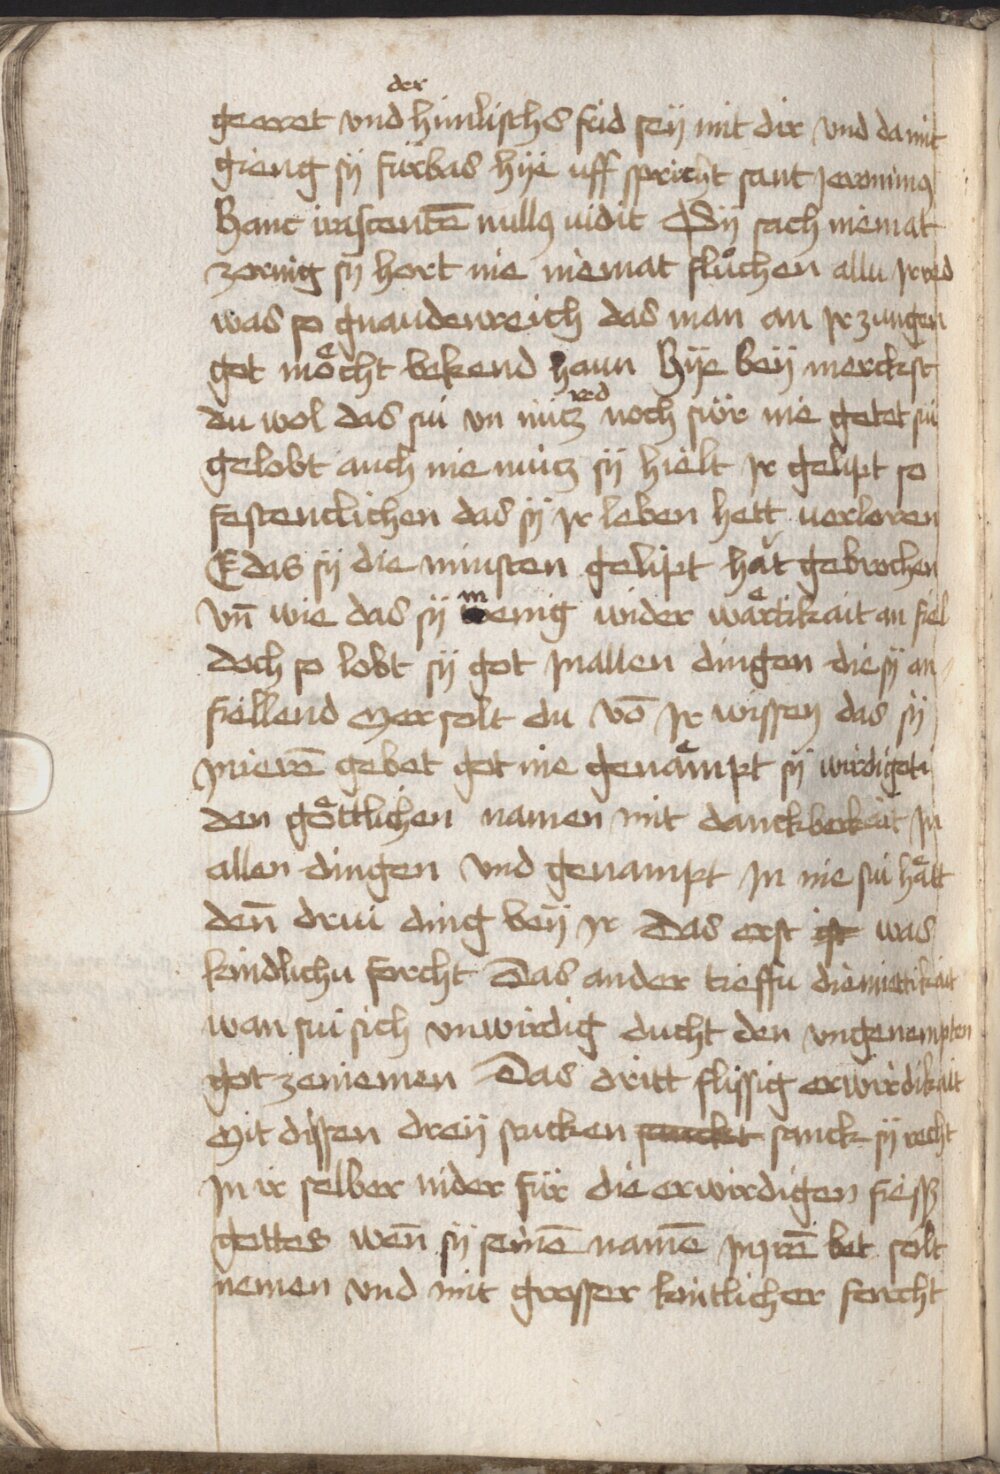 der
geeret vnd himlischs frid seÿ mit dir vnd da mit
gieng sÿ fürbas hÿe uff spricht sant Jeronimꝰ
Hanc irascentē nullꝰ uidit Sÿ sach niemat
zornig sÿ hort nie niemat flůchen allu Jr red
was so gnaudenreich das man an Jr zungen
got moͤcht bekend haun Hÿe beÿ merckst
du wol das sui vn nücz red noch swör nie getet sui
gelobt auch nie nücz sÿ hielt Jr gelipt so
festenclichen das sÿ Jr leben hett uerloren
E das sÿ die minsten gelipt haͤt gebrochen
Vn̄ wie das sÿ menig wider waͤrtikait an fiel
doch so lobt sÿ got Jn allen dingen die sÿ an
fiellend Mer solt du vō Jr wissen das sÿ
Jn ierē gebet got nie genaͤmpt sÿ wirdigeti
den goͤttlichen namen mit danckberkait Jn
allen dingen vnd genampt Jn nie sui haͤtt
den̄ drui ding beÿ Jr Das erst ist was
kindlichu forcht Das ander tieffu diemiettikait
wan sui sich vnwirdig ducht den vngenempten
got zeniemen Das dritt flissig erwirdikait
Mit dissen dreÿ stucken sanckt sanck sÿ recht
Jn ir selber nider für die erwirdigen fiess
gottes wen̄ sÿ seinē namē Jn irē bet solt
nemen vnd mit grosser kintlicher forcht